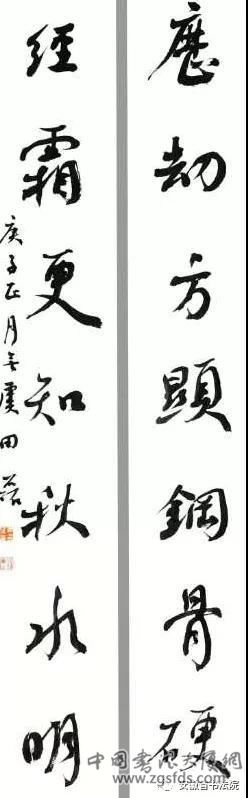 歷劫方顯鋼骨硬
經霜更知秋水明
庚子正月無虞田磊
中国书法大厦网
www.zgsfds.com
安徽省书法院